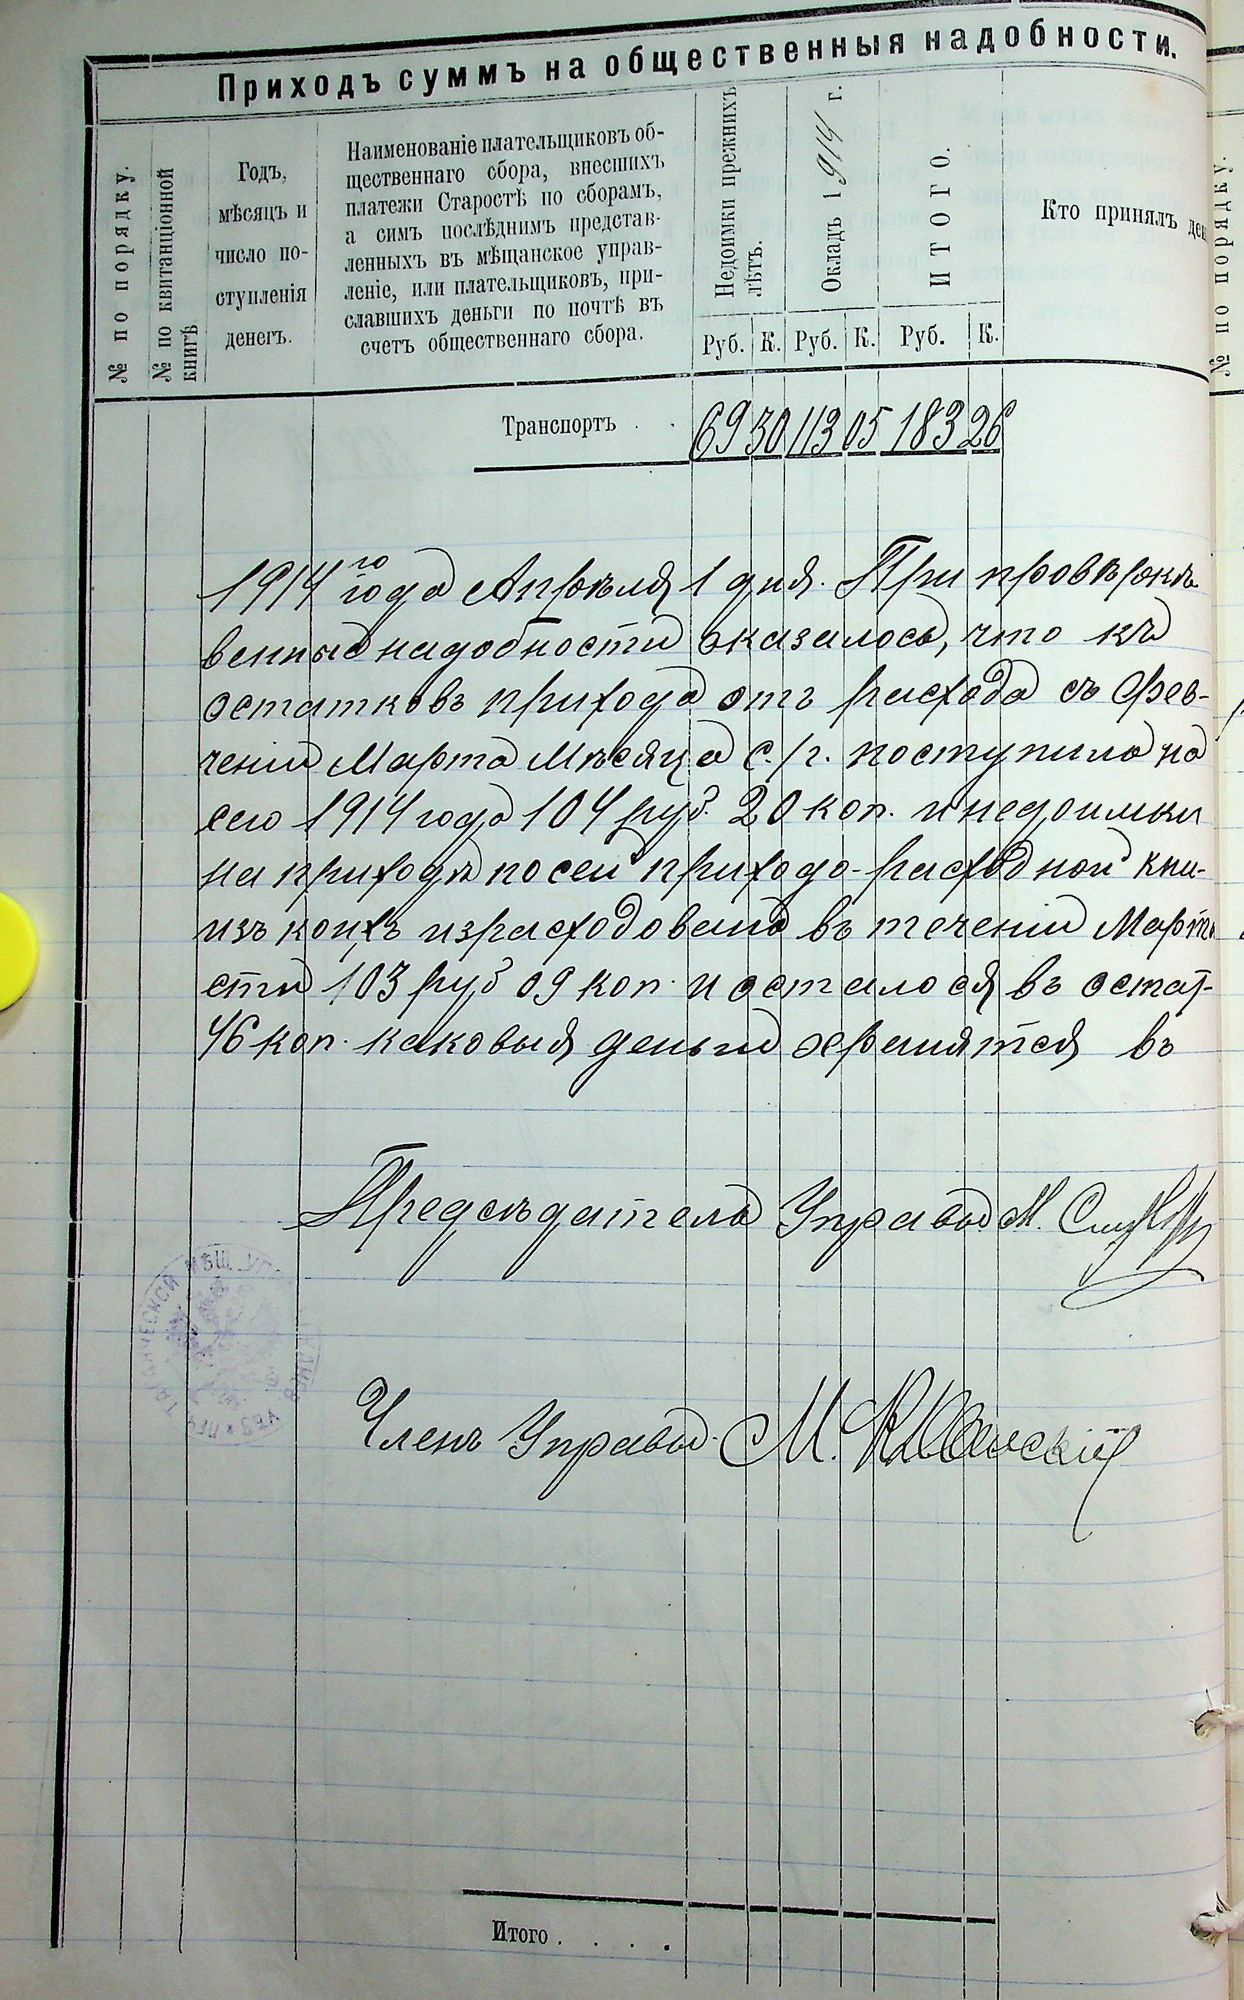 Приходъ суммъ на общественныя надобности.
№ по порядку.
№ по квитанціонной
книгѣ
Годъ,
мѣсяцъ и
число по-
ступленія
денегъ.
Наименованіе плательщиковъ об-
щественнаго сбора, внесшихъ
платежи Старостѣ по сборамъ,
а симъ послѣднимъ представ-
ленныхъ въ мѣщанское управ-
леніе, или плательщиковъ, при-
славшихъ деньги по почтѣ въ
счетъ общественнаго сбора.
Недоимки прежнихъ
лѣтъ.
Окладъ 1914 г.
ИТОГО.
Кто принялъ ден
Руб. К. Руб. К. Руб. К.
№ по порядку.
Транспортъ . . 69 30 113 05 183 26
1914го года Апрѣля 1 дня. При провѣркѣ
венныя надобности оказалось, что къ
остатковъ прихода отъ расхода съ Фев-
ченіи Марта Мѣсяца с./г. поступило на
сего 1914 года 104 руб. 20 коп. и недоимки
на приходъ по сей приходо-расходной кни-
изъ коихъ израсходовано въ теченіи Марта
сти 103 руб 09 коп. и осталося въ остат-
46 коп. каковыя деньги хранятся въ
Предсѣдатель Управы М.
Членъ Управы. М.
Итого . . . .